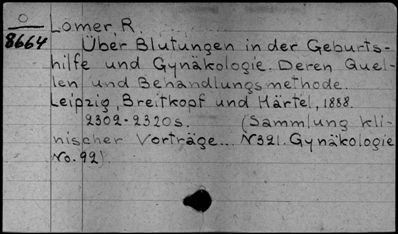 O
8664
Lomer, R.
Über Blutungen in der Geburts-
hilfe und Gynäkologie. Deren Quel-
len und Behandlungsmethode.
Leipzig, Breitkopf und Härtel, 1888.
2302-2320s. (Sammlung kli-
nischer Vorträge... N321. Gynäkologie
No. 92).